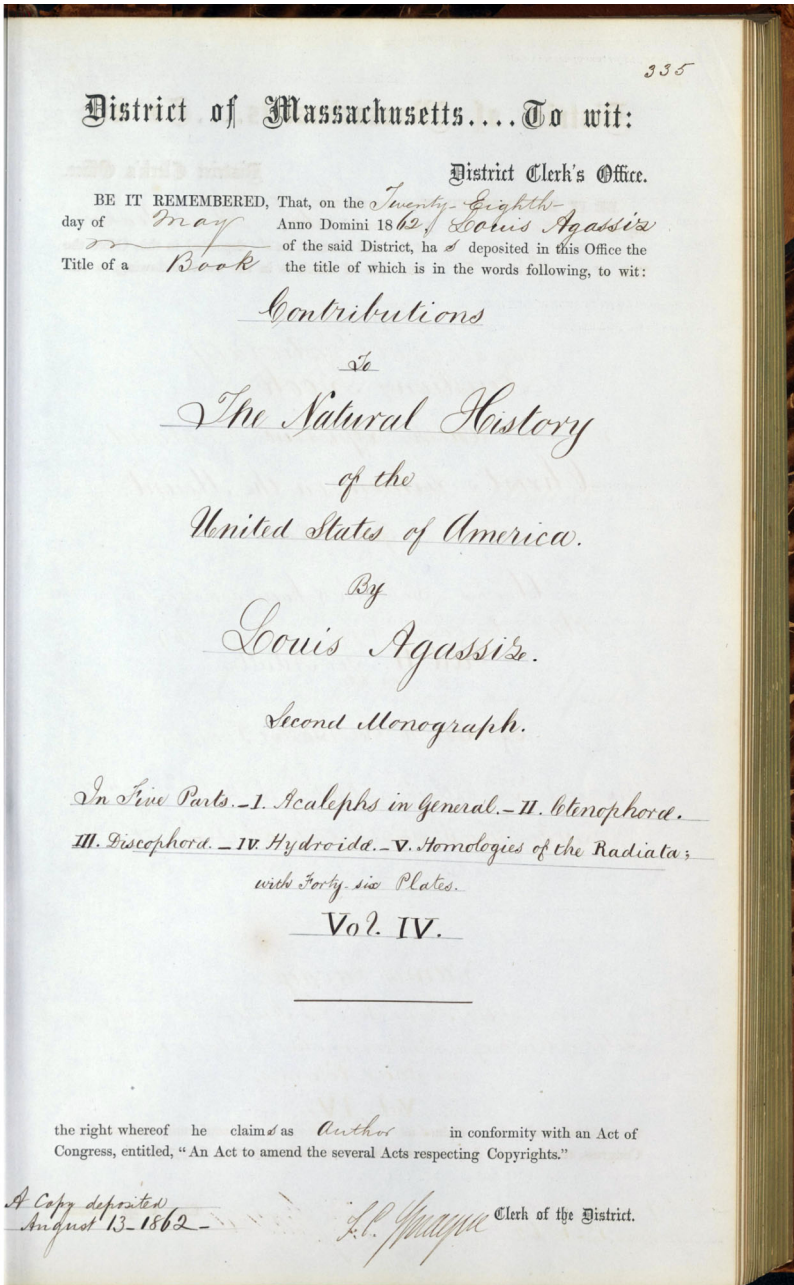 335
District of Massachusetts....To wit:
District Clerk's Office.
BE IT REMEMBERED, That, on the Twenty-Eighth
day of May Anno Domini 1862, Louis Agassiz
of the said District, has deposited in this Office the
Title of a Book the title of which is in the words following, to wit:
Contributions
To
The Natural History
of the
United States of America.
By
Louis Agassiz.
Second Monograph.
In Five Parts.-I. Acalephs in General.-II. Ctenophoræ.
III. Discophoræ.-IV. Hydroidæ.-V. Homologies of the Radiata;
with Forty-six Plates.
Vol. IV.
the right whereof he claims as Author in conformity with an Act of
Congress, entitled, “An Act to amend the several Acts respecting Copyrights.”
A Copy deposited
August 13-1862-
Clerk of the District.